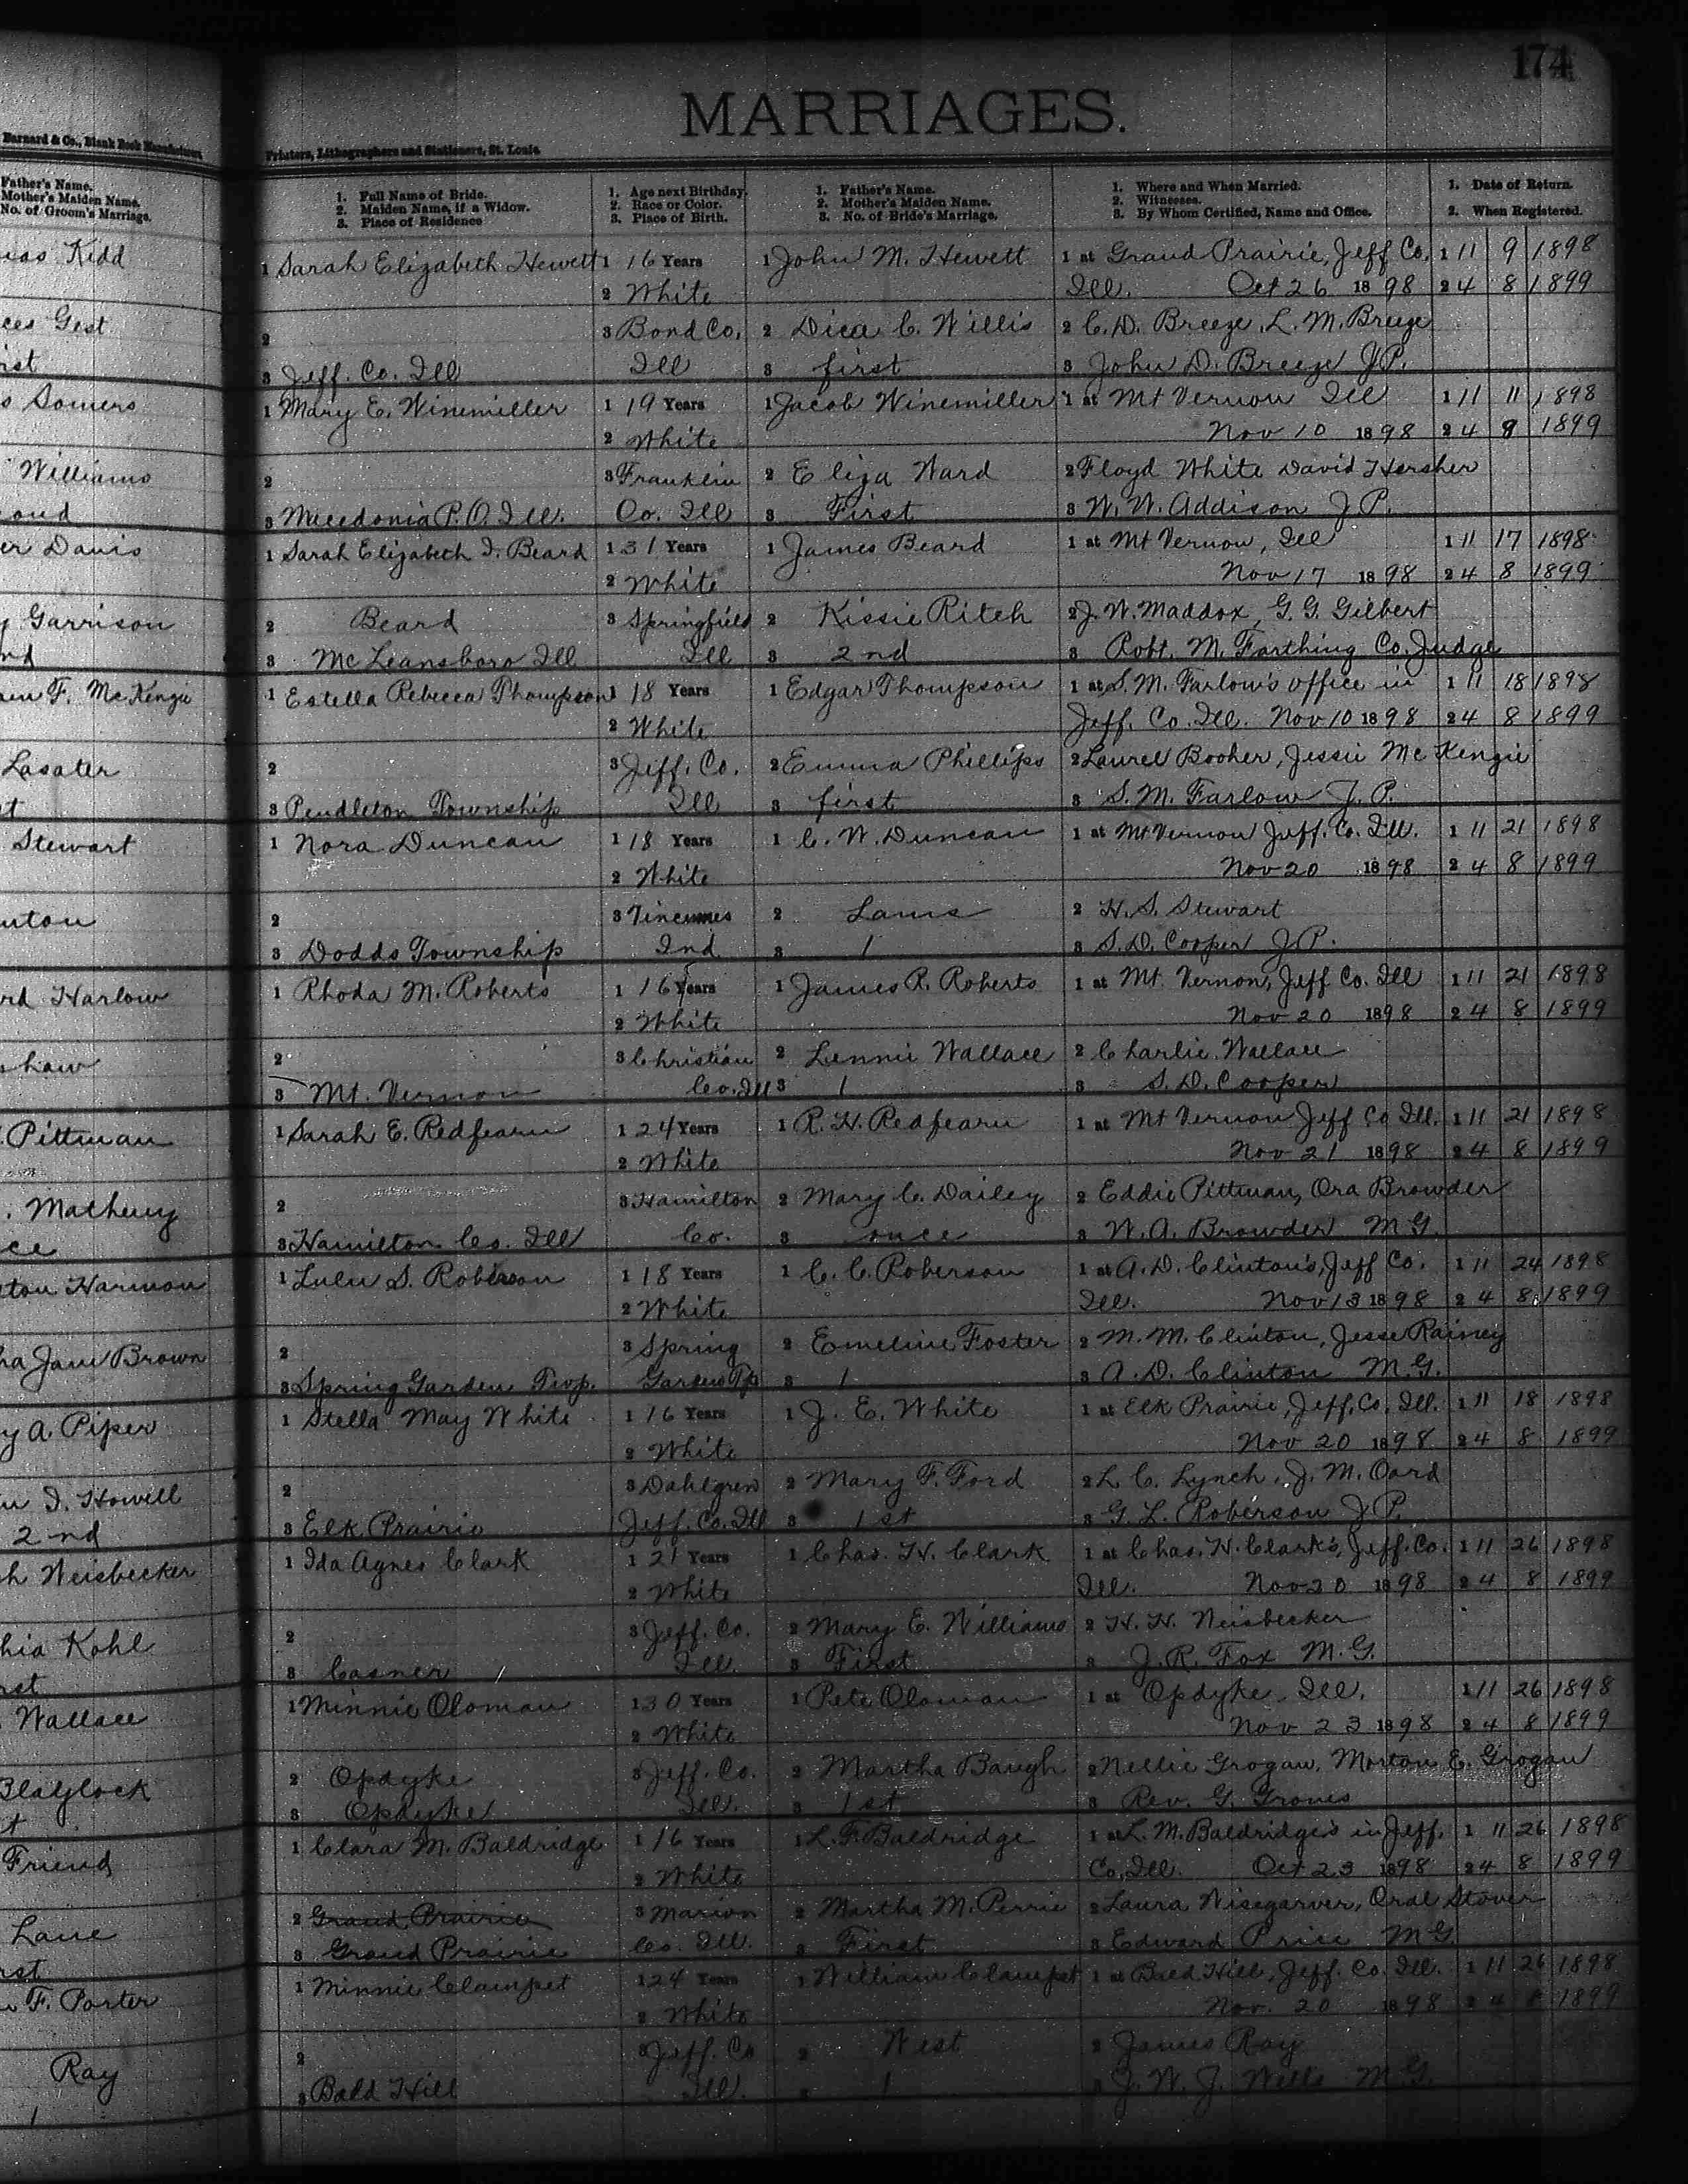 174
MARRIAGES.
Barnard & Co., Blank Book Manufacturers
Printers, Lithographers and Stationers, St. Louis.
Father's Name.
Mother's Maiden Name.
No. of Groom's Marriage.
1. Full Name of Bride.
2. Maiden Name, if a Widow.
3. Place of Residence
1. Age next Birthday.
2. Race or Color.
3. Place of Birth.
1. Father's Name.
2. Mother's Maiden Name.
3. No. of Bride's Marriage.
1. Where and When Married.
2. Witnesses.
3. By Whom Certified, Name and Office.
1. Date of Return.
2. When Registered.
Kidd 1 Sarah Elizabeth Hewett 1 16 Years 1 John M. Hewett 1 at Grand Prairie, Jeff Co, 1 11 9 1898
2 White Ill. Oct 26 1898 2 4 8 1899
Gest 2 3 Bond Co, 2 Dica C. Willis 2 C. D. Breeze, L. M. Breeze
3 Jeff. Co. Ill Ill 3 first 3 John D. Breeze J.P.
Somers 1 Mary E. Winemiller 1 19 Years 1 Jacob Winemiller 1 at Mt Vernon Ill 1 11 11 1898
2 White Nov 10 1898 2 4 8 1899
Williams 2 3 Franklin 2 Eliza Ward 2 Floyd White David Hersher
3 Mecedonia P.O. Ill. Co. Ill 3 First 3 W. W. Addison J.P.
Davis 1 Sarah Elizabeth I. Beard 1 31 Years 1 James Beard 1 at Mt Vernon, Ill 1 11 17 1898
2 White Nov 17 1898 2 4 8 1899
Garrison 2 Beard 3 Springfield 2 Kissie Riteh 2 J. W. Maddox, G. G. Gilbert
3 McLeansboro Ill Ill 3 2nd 3 Robt. M. Farthing Co. Judge
F. McKenzie 1 Estella Rebecca Thompson 1 18 Years 1 Edgar Thompson 1 at S. M. Farlow's office in 1 11 18 1898
2 White Jeff. Co. Ill. Nov 10 1898 2 4 8 1899
Lasater 2 3 Jeff. Co. 2 Emma Phillips 2 Laurel Booher, Jessie McKenzie
3 Pendleton Township Ill 3 first 3 S. M. Farlow J. P.
Stewart 1 Nora Duncan 1 18 Years 1 C. W. Duncan 1 at Mt Vernon Jeff. Co. Ill. 1 11 21 1898
2 White Nov 20 1898 2 4 8 1899
2 3 Vincennes 2 Lams 2 H. S. Stewart
3 Dodds Township Ind 3 1 3 S. D. Cooper J.P.
Harlow 1 Rhoda M. Roberts 1 16 Years 1 James R. Roberts 1 at Mt. Vernon, Jeff Co. Ill 1 11 21 1898
2 White Nov 20 1898 2 4 8 1899
2 3 Christian 2 Lennie Wallace 2 Charlie Wallace
3 Mt. Vernon Co. Ill 3 1 3 S. D. Cooper
Pittman 1 Sarah E. Redfearn 1 24 Years 1 R. H. Redfearn 1 at Mt Vernon Jeff Co Ill. 1 11 21 1898
2 White Nov 21 1898 2 4 8 1899
Matheny 2 3 Hamilton 2 Mary C. Dailey 2 Eddie Pittman, Ora Browder
3 Hamilton Co. Ill Co. 3 once 3 W. A. Browder M G.
Harmon 1 Lulu S. Roberson 1 18 Years 1 C. C. Roberson 1 at A. D. Clinton's, Jeff Co. 1 11 24 1898
2 White Ill. Nov 13 1898 2 4 8 1899
Jane Brown 2 3 Spring 2 Emeline Foster 2 M. M. Clinton, Jesse Rainey
3 Spring Garden Twp. Garden Tp 3 1 3 A. D. Clinton M. G.
A. Piper 1 Stella May White 1 16 Years 1 J. E. White 1 at Elk Prairie, Jeff. Co. Ill. 1 11 18 1898
2 White Nov 20 1898 2 4 8 1899
Howell 2 3 Dahlgren 2 Mary F. Ford 2 L. C. Lynch, J. M. Oard
2nd 3 Elk Prairie Jeff. Co. Ill 3 1st 3 G. L. Roberson J P.
Neisbecker 1 Ida Agnes Clark 1 21 Years 1 Chas. H. Clark 1 at Chas. H. Clark's, Jeff. Co. 1 11 26 1898
2 White Ill. Nov 20 1898 2 4 8 1899
Kohl 2 3 Jeff. Co. 2 Mary E. Williams 2 H. H. Neisbecker
3 Casner Ill. 3 First 3 J. R. Fox M. G.
Wallace 1 Minnie Oloman 1 30 Years 1 Pete Oloman 1 at Opdyke, Ill. 1 11 26 1898
2 White Nov 23 1898 2 4 8 1899
Blaylock 2 Opdyke 3 Jeff. Co. 2 Martha Baugh 2 Nellie Grogan, Morton E. Grogan
3 Opdyke Ill. 3 1st 3 Rev. G. Groves
Friend 1 Clara M. Baldridge 1 16 Years 1 L. F. Baldridge 1 at L. M. Baldridge's in Jeff. 1 11 26 1898
2 White Co, Ill. Oct 23 1898 2 4 8 1899
Lane 2 Grand Prairie 3 Marion 2 Martha M. Perrie 2 Laura Wisegarver, Oral Stover
3 Grand Prairie Co. Ill. 3 First 3 Edward Price M G
F. Porter 1 Minnie Clampet 1 24 Years 1 William Clampet 1 at Bald Hill, Jeff. Co. Ill. 1 11 26 1898
2 White Nov. 20 1898 2 4 8 1899
Ray 2 3 Jeff. Co 2 West 2 James Ray
1 3 Bald Hill Ill. 3 1 3 J. W. J. Wells M. G.